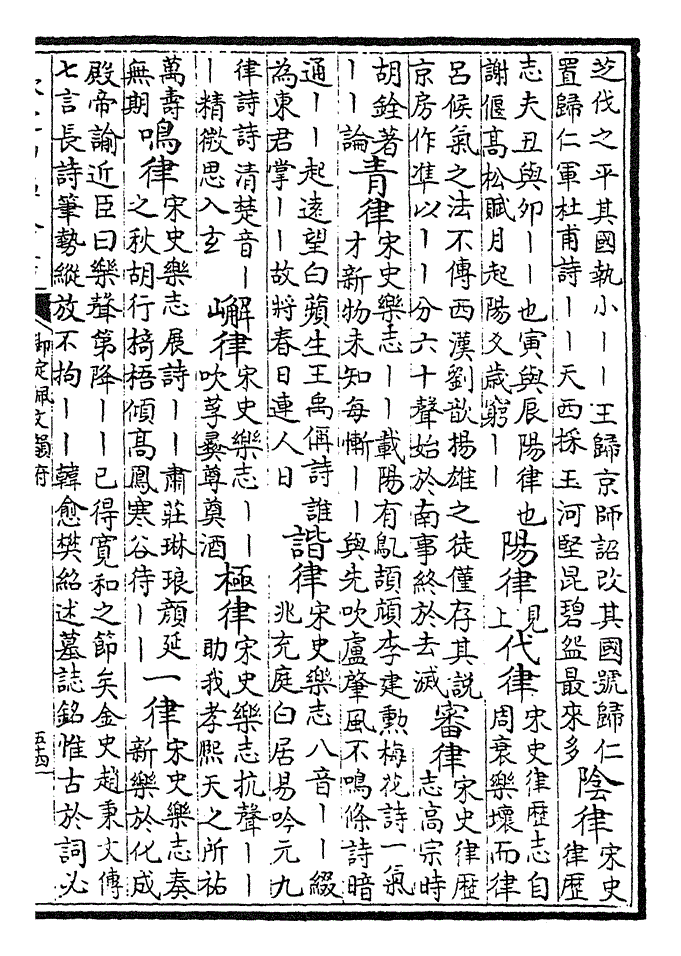 芝伐之平其國執小丨丨王歸京師詔改其國號歸仁
置歸仁軍杜甫詩丨丨天西採玉河堅昆碧盌最來多
陰律
宋史
律歷
志夫丑與卯丨丨也寅與辰陽律也
謝偃高松賦月起陽爻歲窮丨丨
陽律
見
上
代律
宋史律歷志自
周衰樂壞而律
呂候氣之法不傳西漢劉歆揚雄之徒僅存其說
京房作準以丨丨分六十聲始於南事終於去滅
審律
宋史律歷
志高宗時
胡銓著
丨丨論
青律
宋史樂志丨丨載陽有鳦頡頏李建勳梅花詩一氣
才新物未知每慚丨丨與先吹盧肇風不鳴條詩暗
通丨丨起遠望白蘋生王禹偁詩誰
為東君掌丨丨故將春日連人日
諧律
宋史樂志八音丨丨綴
兆充庭白居易吟元九
律詩詩清楚音丨
丨精微思入玄
嶰律
宋史樂志丨丨
吹莩彝尊奠酒
極律
宋史樂志抗聲丨丨
助我孝熙天之所祐
萬壽
無期
鳴律
宋史樂志展詩丨丨肅莊琳琅顏延
之秋胡行椅梧傾高鳳寒谷待丨丨
一律
宋史樂志奏
新樂於化成
殿帝諭近臣曰樂聲第降丨丨已得寬和之節矣金史趙秉文傳
七言長詩筆勢縱放不拘丨丨韓愈樊紹述墓誌銘惟古於詞必
御定佩文韻府